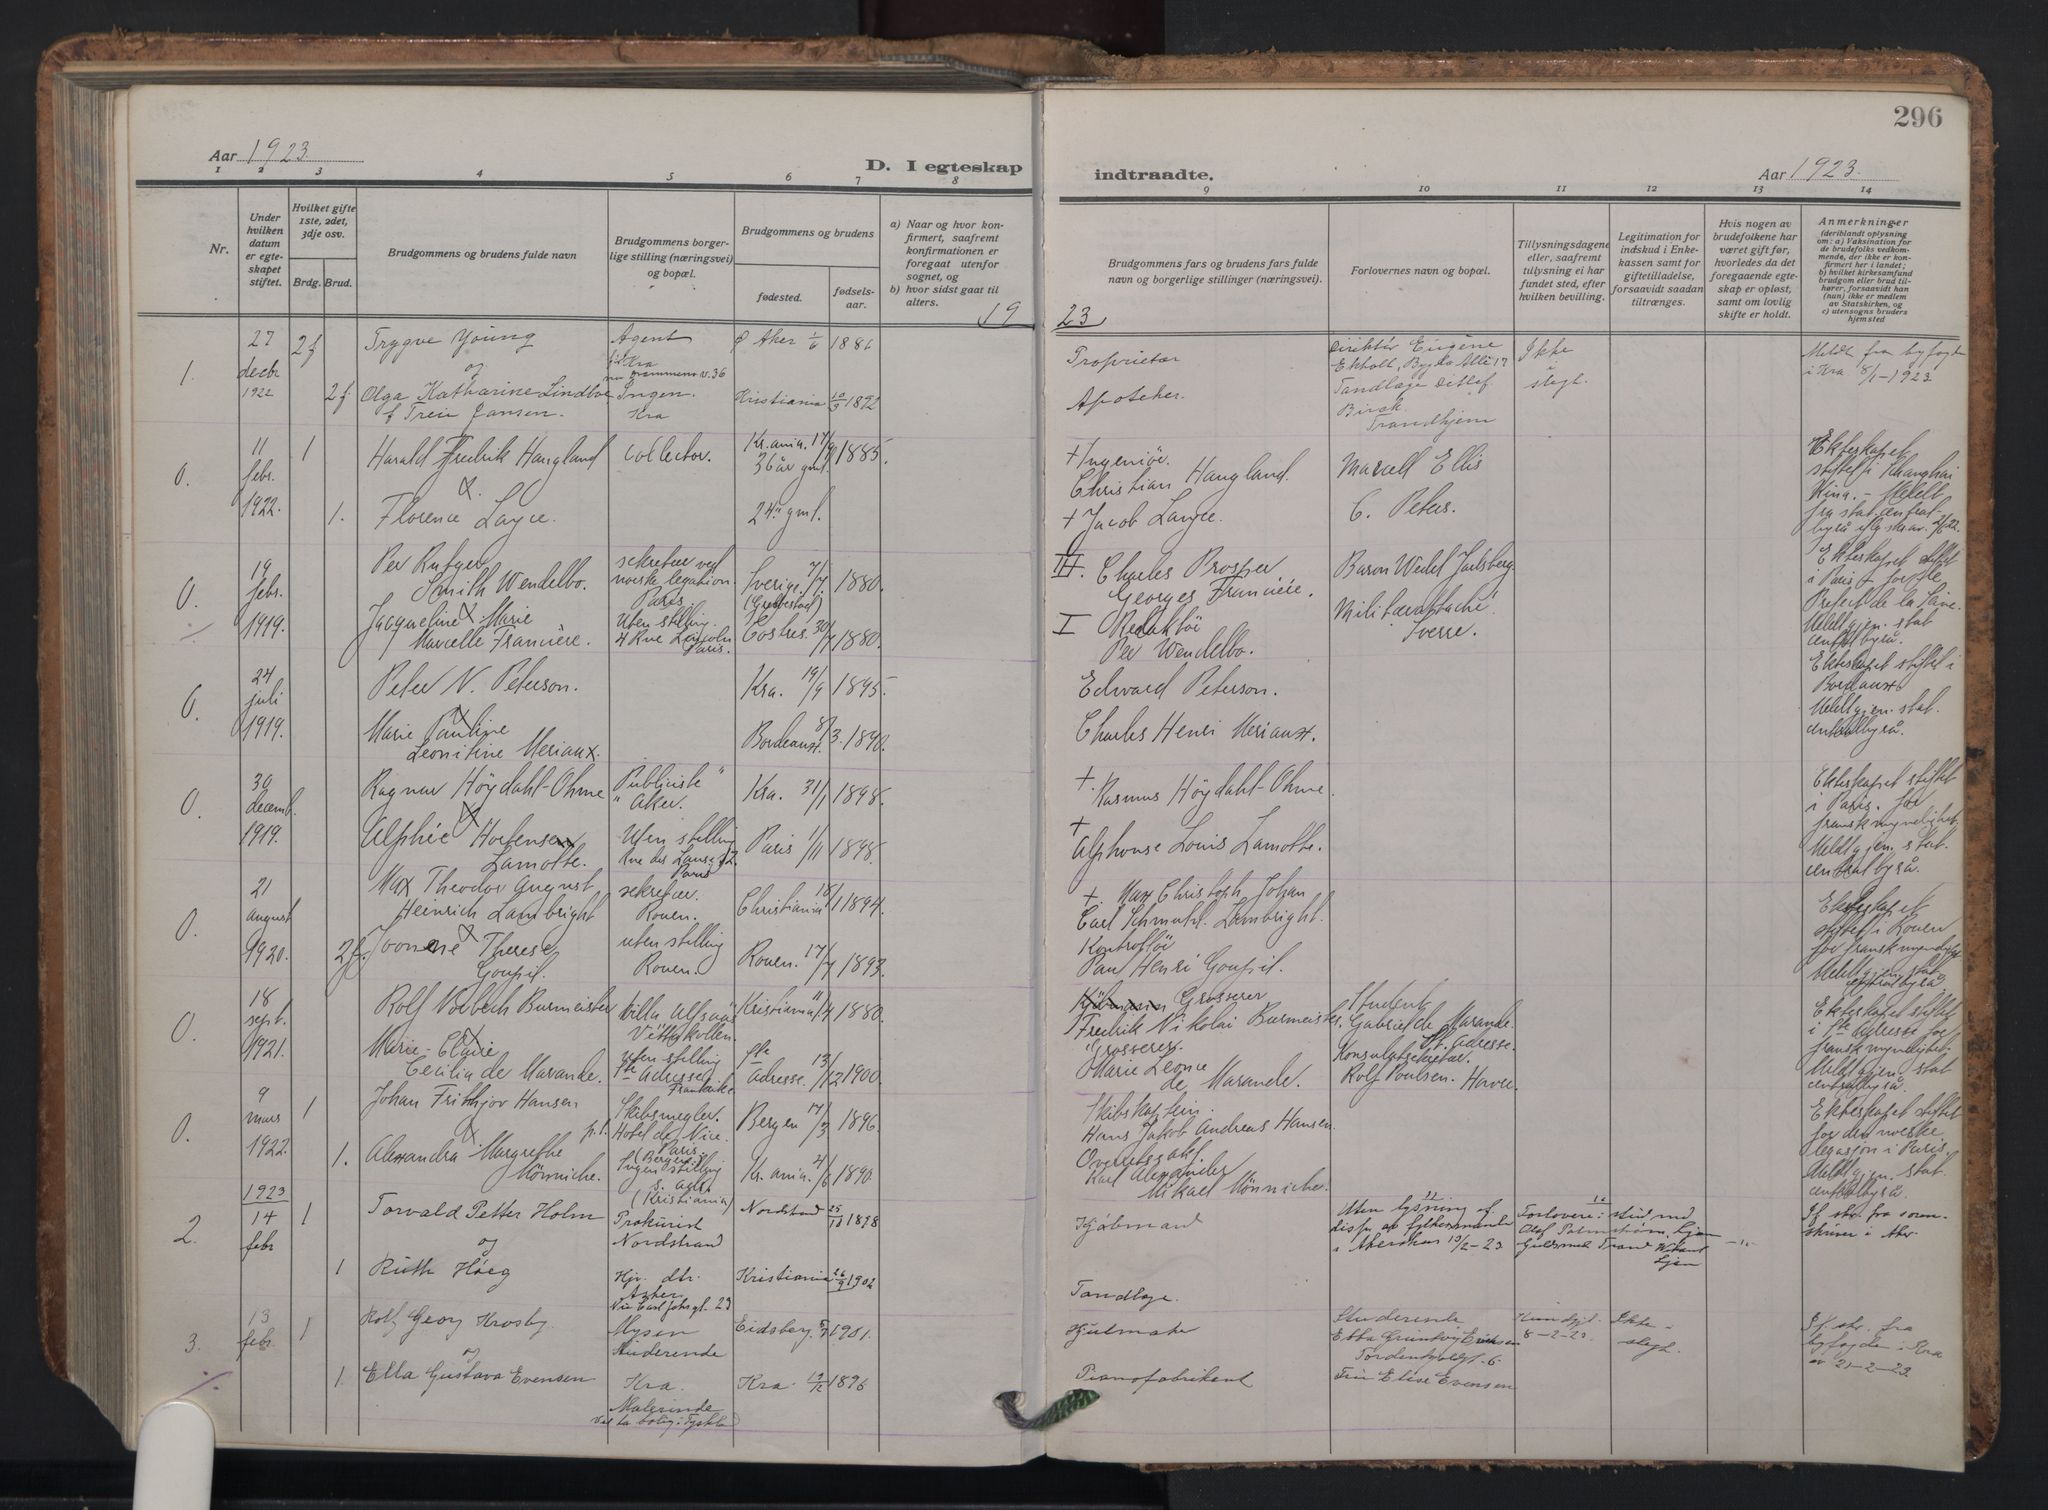 296
Aar 1923
D. I egteskap
indtraadte.
Aar 1923.
1 2 3 4 5 6 7 8
9 10 11 12 13 14
Nr.
Under hvilken datum er egteskapet stiftet.
Hvilket gifte 1ste, 2det, 3dje osv.
Brdg. Brud.
Brudgommens og brudens fulde navn
Brudgommens borgerlige stilling (næringsvei) og bopæl.
Brudgommens og brudens
fødested.
fødselsaar.
a) Naar og hvor konfirmert, saafremt konfirmationen er foregaat utenfor sognet, og
b) hvor sidst gaat til alters.
Brudgommens fars og brudens fars fulde navn og borgerlige stillinger (næringsvei).
Forlovernes navn og bopæl.
Tillysningsdagene eller, saafremt tillysning ei har fundet sted, efter hvilken bevilling.
Legitimation for indskud i Enkekassen samt for giftetilladelse, forsaavidt saadan tiltrænges.
Hvis nogen av brudefolkene har været gift før, hvorledes da det foregaaende egteskap er opløst, samt om lovlig skifte er holdt.
Anmerkninger
(deriblandt oplysning om: a) Vaksination for de brudefolks vedkommende, der ikke er konfirmert her i landet; b) hvilket kirkesamfund brudgom eller brud tilhører, forsaavidt han (hun) ikke er medlem av Statskirken, og c) utensogns bruders hjemsted
19
23
1.
27 decbr 1922
2 f
Trygve Young
Agent
Kra
Ø Aker 1/6 1881
Proprietær
Direktør Eugene
Ekholt, Bygdø Allé 17
Ikke
slegt.
Meldt fra byfogden
i Kra 8/1-1923.
og
2 f.
Olga Katharine Lindboe
f Trein Jansen.
Ingen.
Kra
Kristiania 10/3 1892
Apoteker.
Tandlæge Ditlef
Birck
Trondhjem
0.
11 febr. 1922.
1
Harald Fredrik Haugland
collector.
Kr.ania. 17/9 1885.
36 år gml.
+ Ingeniør
Christian Haugland.
Marcell Ellis
Ekteskapet
stiftet i Shanghai
Kina. - Meldt
fra stat. central-
byrå
&
1.
Florence Layce.
24 " gml.
+ Jacob Layce.
C. Peters.
0.
19 febr. 1919.
Per Rutger
Smith Wendelbo.
sekretær ved
norske legation.
Paris
Sverige. 7/7 1880.
(Grebbestad)
II. Charles Prosper
Georges Francière.
Baron Wedel Jarlsberg
Ekteskapet stiftet
i Paris
Prefect de la Seine.
Meldt gjen. stat
centralbyrå.
&
Jacqueline Marie
Marcelle Francière.
Uten stilling.
4 Rue Lincoln
Paris.
Castres. 30/7 1880.
I Redaktør
Per Wendelbo.
Militærattaché
Sverre.
0.
24 juli 1919.
Peter N. Peterson.
Kra. 19/9 1895.
Edward Peterson.
Ekteskapet stiftet i
Bordeaux.
Meldt gjen. stat.
centralbyrå.
&
Marie Pauline
Leonitine Meriaux.
Bordeaux. 8/3 1890.
Charles Henri Meriaux.
0.
30 decemb. 1919.
Ragnar Höydahl-Ohme
Publiciste
" Aker.
Kra. 31/1 1898.
+.
Rasmus Höydahl-Ohme.
Ekteskapet stiftet
i Paris. for
fransk myndighet.
Meldt gjen. stat.
centralbyrå.
&
Alphée Hortensen
Lamotte.
Uten stilling
Paris
Paris 1/11 1898.
+
Alphonse Louis Lamotte.
0.
21 august 1920.
Max Theodor August
Heinrich Lambright
sekretær
Rouen.
Christiania 18/1 1894.
+ Max Christoph Johan
Carl Schmuhl. Lambright.
Ekteskapet
stiftet i Rouen
for fransk myndighet
Meldt gjen. stat.
centralbyrå
&
2 f.
Yvonne Therese
Goupil.
uten stilling
Rouen.
Rouen. 17/7 1893.
Kontrollør
Paul Henri Goupil.
0.
18 sept. 1921.
Rolf Voebech Burmeister
Villa Alfsaas
Voksenkollen.
Kristiania 1880.
Grosserer
Fredrik Nikolai Burmeister.
Student
Gabriel de Marande.
St. Adresse.
Ekteskapet stiftet
i Ste Adresse for
fransk myndighet.
Meldt gjen. stat
centralbyrå.
&
Marie-Claire
Cecilia de Marande.
uten stilling
Ste Adresse
Frankrike
Ste
Adresse. 13/12 1900.
Grosserer
Marie Leonce
de Marande.
Konsulatsekretær
Rolf Poulsen. Havre.
0.
9 mars 1922.
1
Johan Frithjov Hansen
Skibsmegler.
p.t. Hotel de Nice.
Paris.
(Bergen)
Bergen 17/3 1896.
Skibskaptein.
Hans Jakob Andreas Hansen.
Ekteskapet stiftet
for den norske
legasjon i Paris.
Meldt gjen. stat.
centralbyrå.
&
1.
Alexandra Margrethe
Mönniche.
Ingen stilling
s. adr.
(Kristiania)
Kr.ania. 4/6 1890.
Overretssakf.
Karl Alexander
Mikael Mönniche.
2.
1923
14 febr
1
Torvald Petter Holm
Prokurist
Nordstrand
Nordstrand 25/10 1898
Kjøbmand
Uten lysning ef.
disp. af fylkesmanden
i Akershus 10/2-23
Forlovere: stud med
Olaf Palmstrøm, Ljan
Guldsmed
Ljan
If. skr. fra soren-
skriver i Aker
og
1
Ruth Høeg
Hjv. dtr.
Asker
Kristiania 26/9 1902
Tandlæge.
3.
13 febr.
1
Rolf Georg Krosby.
Mysen
Studerende
Eidsberg 1901.
Hjulmaker
Studerende
Ebba Grundtvig Ericksen
Tordenskjoldsgt. 6.
8-2-23.
Ikke
slegt.
If. skr. fra
byfogden i Kra
av 21-2-23.
og
1.
Ella Gustava Evensen
Kra.
Malerinde
vil ta bolig i Tyskland
Kra. 19/2 1896
Pianofabrikant
Fru Elise Evensen